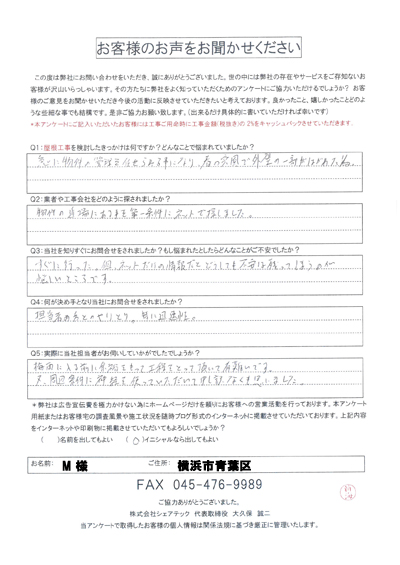 お客様のお声をお聞かせください
この度は弊社にお問い合わせをいただき、誠にありがとうございました。世の中には弊社の存在やサービスをご存知ないお
客様が沢山いらっしゃいます。その方たちに弊社をよく知っていただくためのアンケートにご協力いただけるでしょうか？お客
様のご意見をお聞かせいただき今後の活動に反映させていただきたいと考えております。良かったこと、嬉しかったことどのよ
うな些細な事でも結構です。是非ご協力お願い致します。（出来るだけ具体的に書いていただければ幸いです）
*本アンケートにご記入いただいたお客様には工事ご用命時に工事金額(税抜き)の2%をキャッシュバックさせていただきます。
Q1：屋根工事を検討したきっかけは何ですか？どんなことで悩まれていましたか？
急に物件の管理を任せられる事になり、春の突風で
Q2：業者や工事会社をどのように探されましたか？
ネットで探しました。
Q3：当社を知りすぐにお問合せをされましたか？もし悩まれたとしたらどんなことがご不安でしたか？
すぐに行った。ネットだけの情報だとどうしても不安は残ってしまうのが
ところです。
Q4：何が決め手となり当社にお問合せをされましたか？
担当者の方とのやりとり。
Q5：実際に当社担当者がお伺いしていかがでしたでしょうか？
梅雨に入る前に
使っていただいて
*弊社は広告宣伝費を極力かけない為にホームページだけを頼りにお客様への営業活動を行っております。本アンケート
用紙またはお客様宅の調査風景や施工状況を随時ブログ形式のインターネットに掲載させていただいております。上記内容
をインターネットや印刷物に掲載させていただいてもよろしいでしょうか？
（　）名前を出してもよい　（○）イニシャルなら出してもよい
お名前：　M 様　ご住所：　横浜市青葉区
FAX 045-476-9989
ご協力ありがとうございました。
株式会社シェアテック 代表取締役 大久保 誠二
当アンケートで取得したお客様の個人情報は関係法規に基づき厳正に管理いたします。